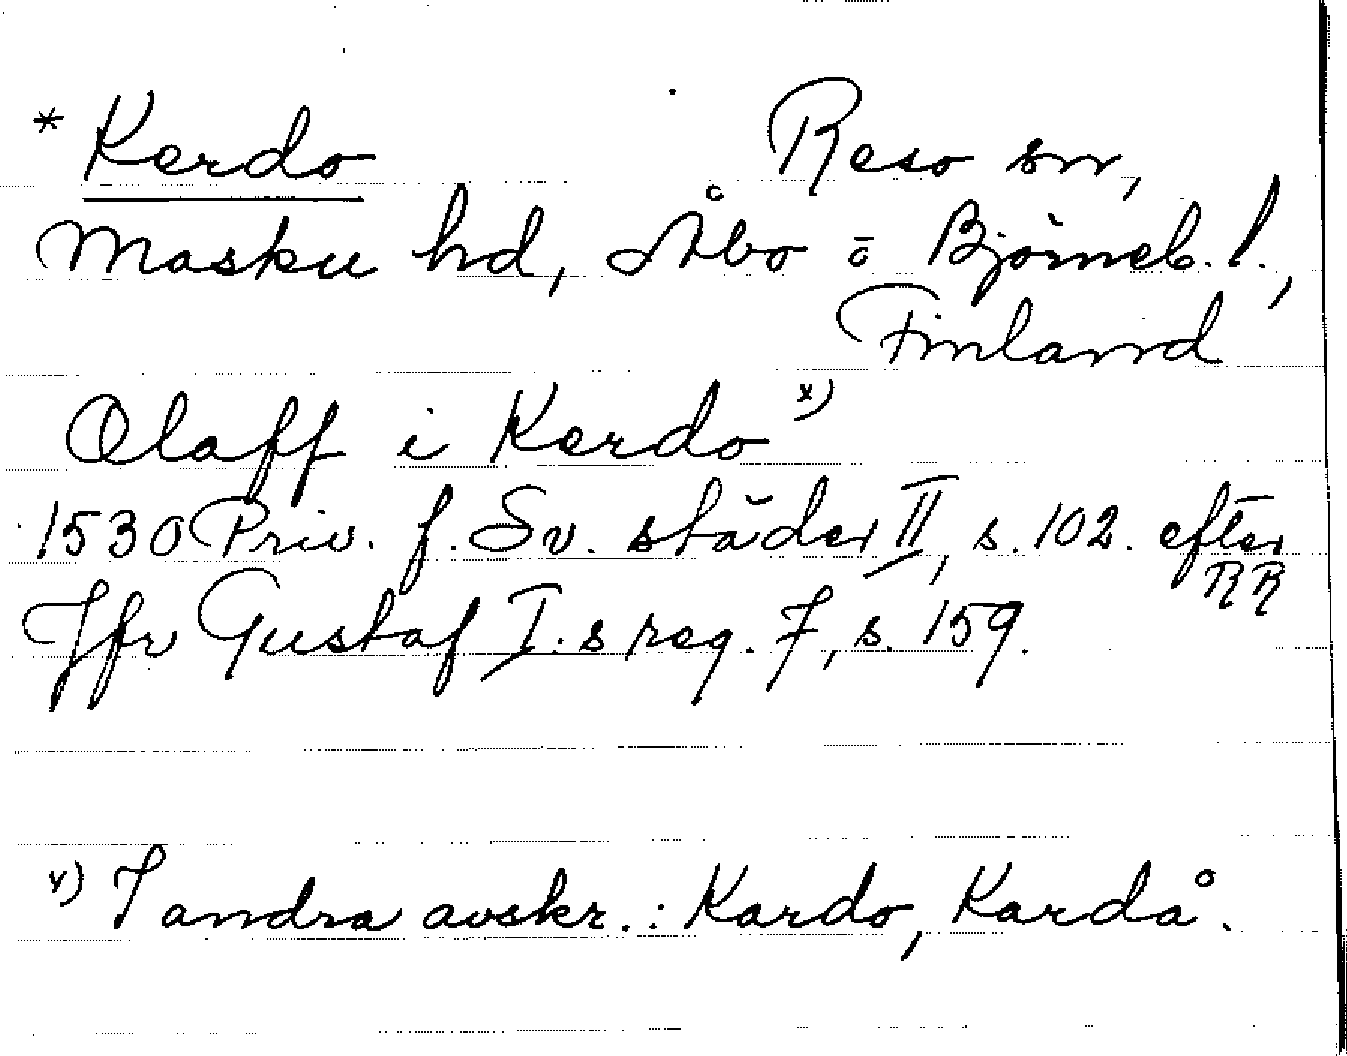 * Kerdo Reso sn,
Masku hd, Åbo o Björneb. l.,
Finland
Olaff i Kerdo x)
1530 Priv. f. Sv. städer II, s. 102. efter
RR
Jfr Gustaf I:s reg. 7, s. 159.
x) I andra avskr.: Kardo, Kardå.